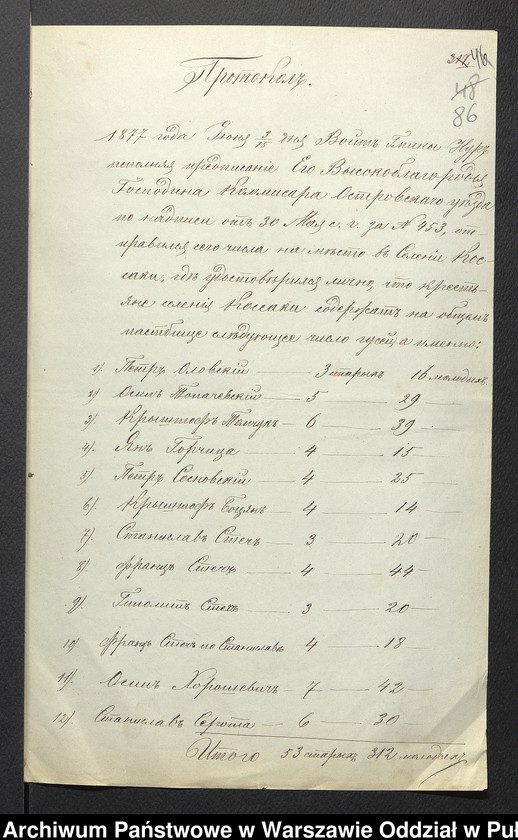 46
48
86
Протоколъ.
1877 года Іюня 3/15 дня Войтъ Гмины Нуръ
исполняя предписаніе Его Высокоблагородія
Господина Коммисара Островскаго уѣзда
по надписи отъ 30 Мая с. г. за N 453, от-
правился сего числа на мѣсто въ Селеніе Кос-
саки, гдѣ удостовѣрился лично, что кресть-
яне селенія Коссаки содержатъ на общемъ
пастбище слѣдующее число гусей, а именно:
1) Петръ Оловскій — 3 старыхъ 16 молодыхъ
2) Осипъ Толачевскій — 5 — 29 —
3) Крыштофъ Томчукъ — 6 — 39 —
4) Янъ Горчица — 4 — 15
5) Петръ Сосновскій — 4 — 25 —
6) Крыштофъ Боцянъ — 4 — 14 —
7) Станиславъ Стечь — 3 — 20 —
8) Францъ Стечь — 4 — 44 —
9) Гиполитъ Стечь — 3 — 20 —
10) Францъ Стечь по Станиславѣ 4 — 18 —
11) Осипъ Хорошевичъ — 7 — 42 —
12) Станиславъ — 6 — 30 —
Итого 53 старыхъ 312 молодыхъ
Archiwum Państwowe w Warszawie Oddział w Puł